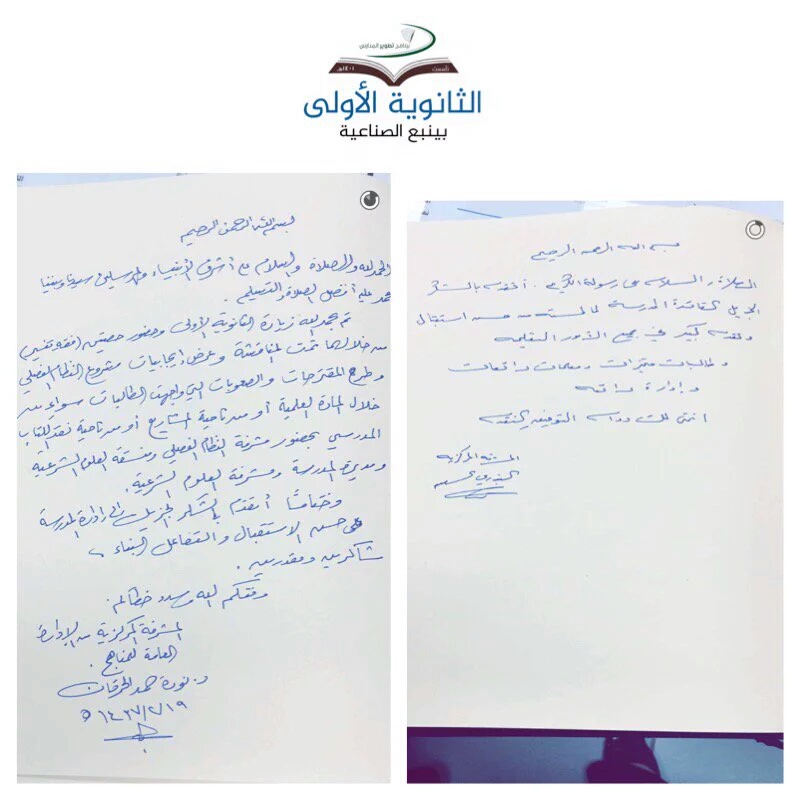 برنامج تطوير المدارس
تأسست ١٤٠١هـ
الثانوية الأولى
بينبع الصناعية
بسم الله الرحمن الرحيم
الحمد لله والصلاة والسلام على أشرف الأنبياء والمرسلين سيدنا ونبينا
محمد عليه أفضل الصلاة والتسليم .
تم بحمد الله زيارة الثانوية الأولى وحضور حصتين (فقه وتفسير)
من خلالهما تمت المناقشة وعرض إيجابيات مشروع النظام الفصلي
وطرح المقترحات والصعوبات التي واجهت الطالبات سواء من
خلال المادة العلمية أو من ناحية المشاريع أو من ناحية نقد الكتاب
المدرسي بحضور مشرفة النظام الفصلي ومنسقة العلوم الشرعية
ومديرة المدرسة ومشرفة العلوم الشرعية
وختاماً أتقدم بالشكر الجزيل إلى إدارة المدرسة
على حسن الاستقبال والتفاعل البناء ،
شاكرين ومقدرين .
وفقكم الله وسدد خطاكم .
المشرفة المركزية من الإدارة
العامة للمناهج .
د. نورة حمد
١٤٣٧/٢/١٩ هـ
بسم الله الرحمن الرحيم
الصلاة والسلام على رسوله الكريم . أتقدم بالشكر
الجزيل لقائدة المدرسة لما لمست من حسن استقبال
كبير في جميع الأمور التعليمية
وطالبات متميزات ومعلمات رائعات
وإدارة راقية
أتمنى لكن دوام التوفيق
المشرفة المركزية